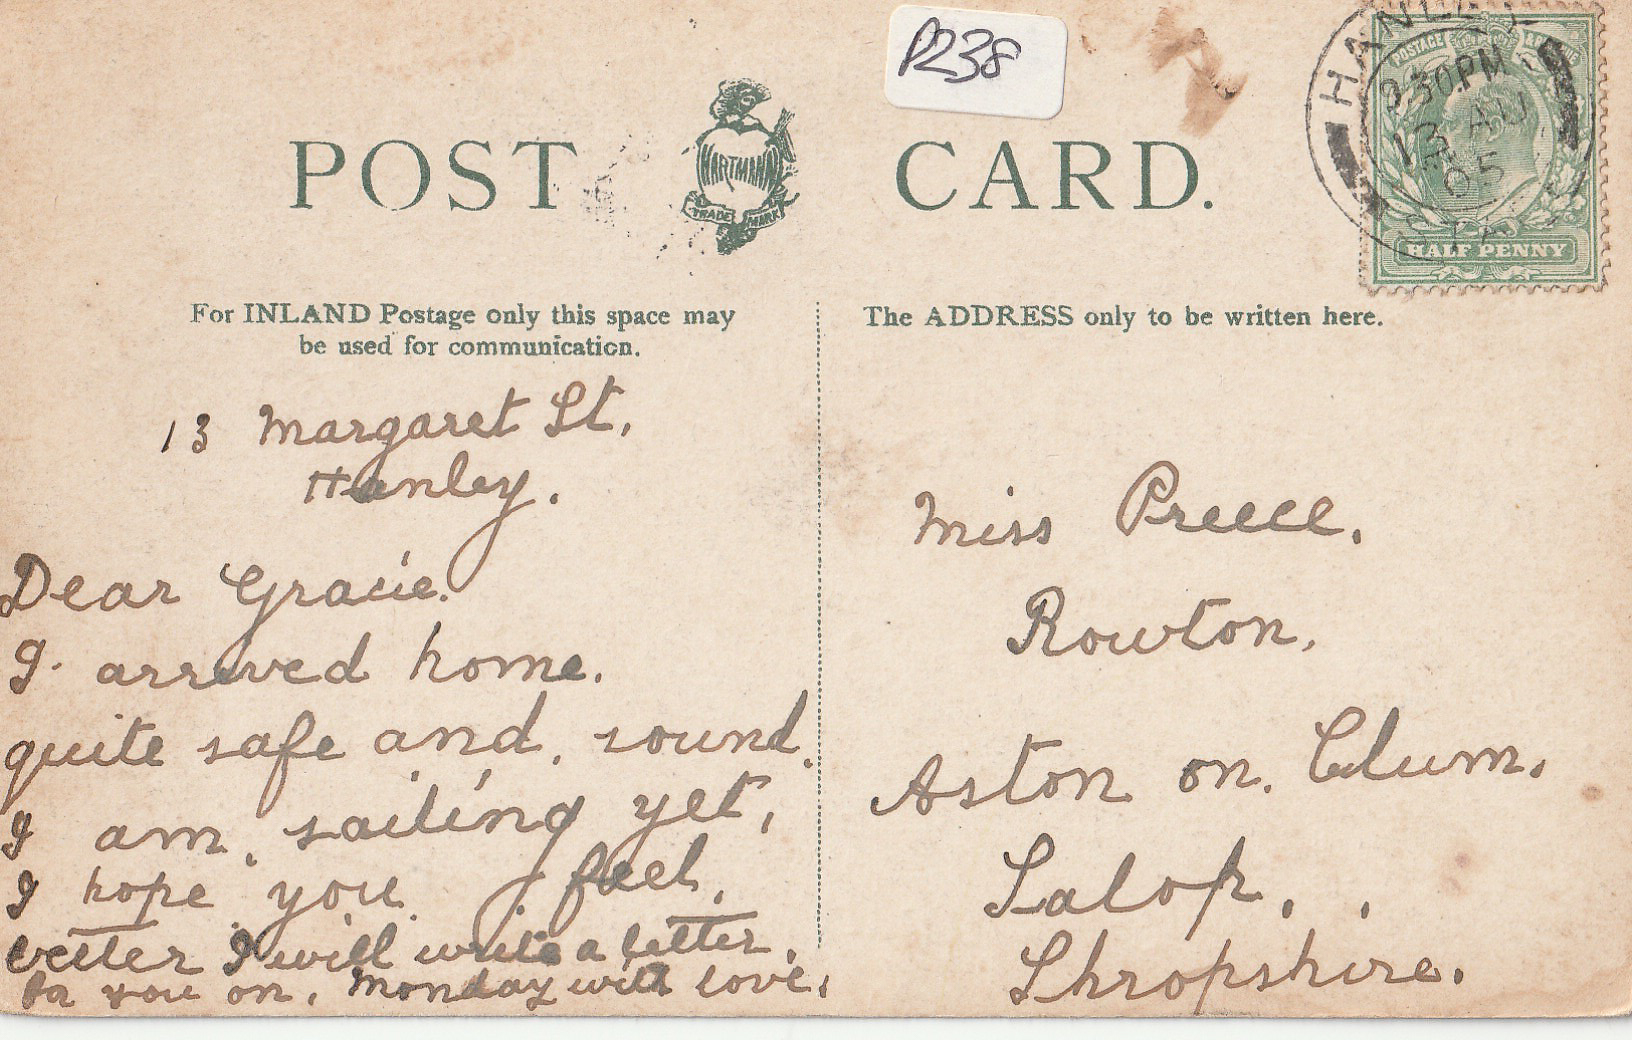 P238
POST CARD.
HARTMANN
TRADE MARK
HANLEY
9.30PM
13 AU
05
POSTAGE
HALF PENNY
For INLAND Postage only this space may
be used for communication.
The ADDRESS only to be written here.
13 Margaret St,
Hanley.
Dear Gracie.
I. arrived home.
quite safe and, sound.
I am, sailing yet,
I hope you feel,
better I will write a letter,
to you on, Monday with love,
Miss Preece.
Rowton,
Aston on. Clum.
Salop, ,
Shropshire.